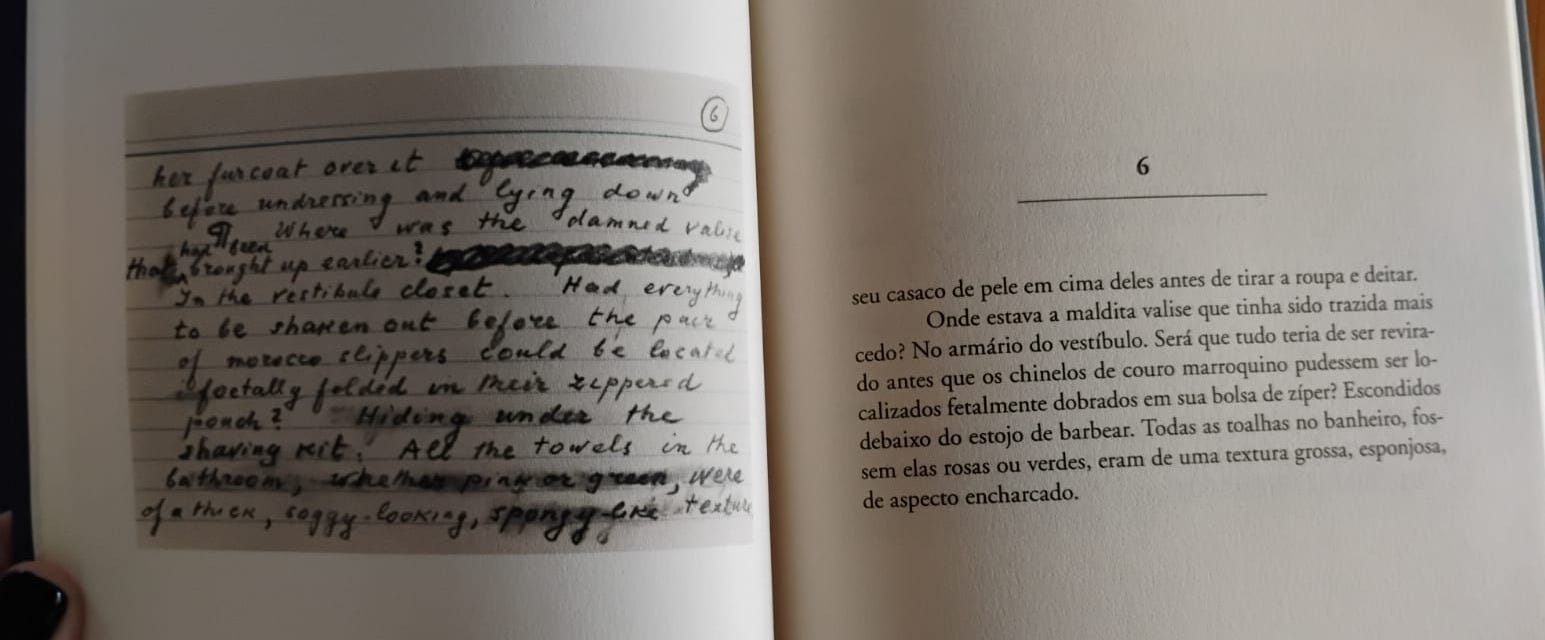 6
her furcoat over it
before undressing and lying down
¶ Where was the damned valise
had been
that brought up earlier?
In the vestibule closet. Had everything
to be shaken out before the pair
of morocco slippers could be located
foetally folded in their zippered
pouch? Hiding under the
shaving kit. All the towels in the
bathroom, whether pink or green, were
of a thick, soggy-looking, spongy-like texture
6
seu casaco de pele em cima deles antes de tirar a roupa e deitar.
Onde estava a maldita valise que tinha sido trazida mais
cedo? No armário do vestíbulo. Será que tudo teria de ser revira-
do antes que os chinelos de couro marroquino pudessem ser lo-
calizados fetalmente dobrados em sua bolsa de zíper? Escondidos
debaixo do estojo de barbear. Todas as toalhas no banheiro, fos-
sem elas rosas ou verdes, eram de uma textura grossa, esponjosa,
de aspecto encharcado.